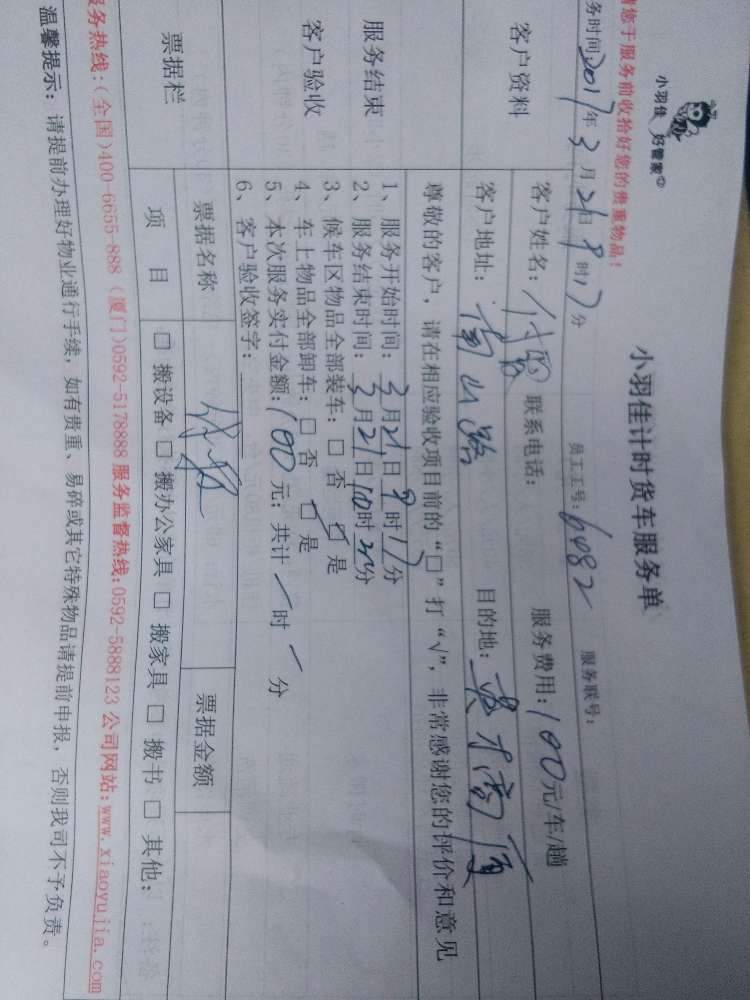 小羽佳 好管家
小羽佳计时货车服务单
请您于服务前收拾好您的贵重物品!
员工工号: 6082 服务联号:
务时间2017年3月21日9时17分
客户资料
客户姓名: 联系电话: 服务费用: 100元/车/趟
客户地址: 南山路 目的地: 英才商厦
尊敬的客户, 请在相应验收项目前的“□”打“√”, 非常感谢您的评价和意见
服务结束
客户验收
1、服务开始时间: 3月21日9时17分
2、服务结束时间: 3月21日10时20分
3、候车区物品全部装车: □ 否 ☑ 是
4、车上物品全部卸车: □ 否 ☑ 是
5、本次服务实付金额: 100元; 共计 / 时 / 分
6、客户验收签字:
票据栏
票据名称 票据金额
项 目 □ 搬设备 □ 搬办公家具 □ 搬家具 □ 搬书 □ 其他:
服务热线:(全国)400-6655-888 (厦门)0592-5178888 服务监督热线:0592-5888123 公司网站:www.xiaoyujia.com
温馨提示: 请提前办理好物业通行手续, 如有贵重、易碎或其它特殊物品请提前申报, 否则我司不予负责。